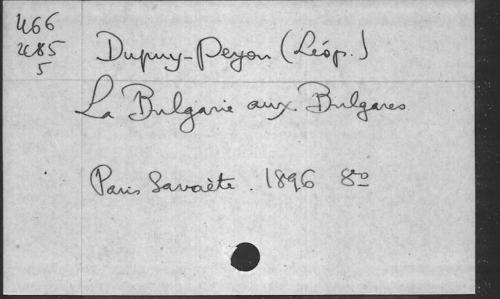 466
485
5
Dupuy-Peyou (Léop.)
La Bulgarie aux Bulgares
Paris Savaète. 1896 8º